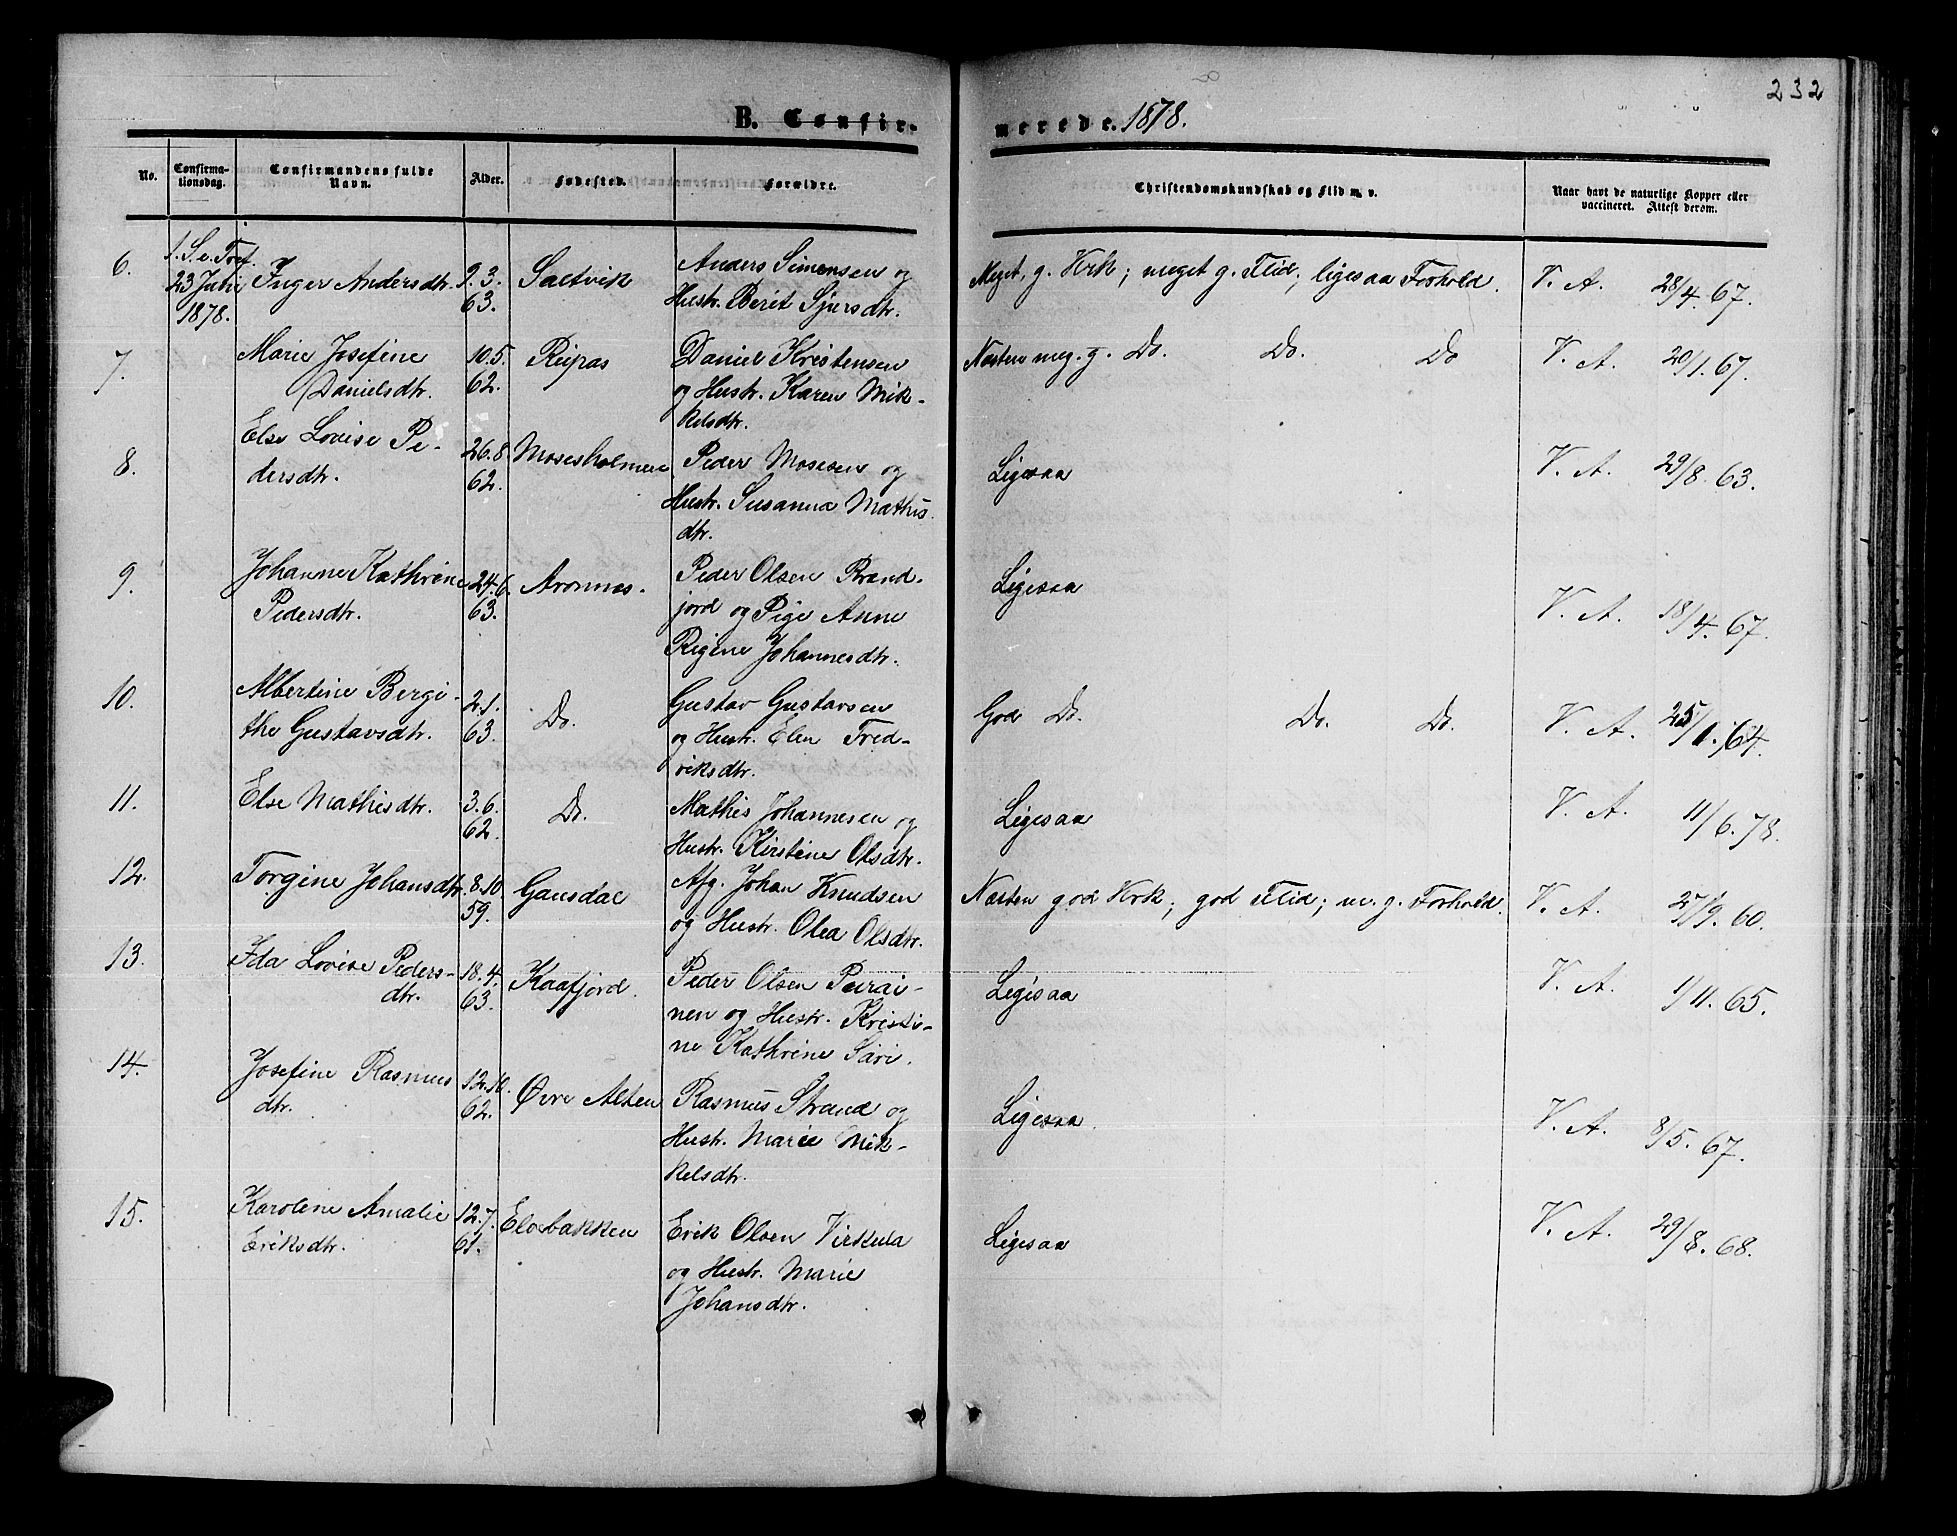 232
B. Confirmerede. 1878.
No.
Confirmationsdag.
Confirmandens fulde Navn.
Alder.
Fødested.
Forældre.
Christendomskundskab og Flid m. v.
Naar havt de naturlige Kopper eller vaccineret. Attest derom.
6. 1. S. e. Tref. 23 Juni 1878. Inger Andersdtr. 9.3. 63. Saltvik Anders Simonsen og Hustr. Berit Sjursdtr. Meget g. Krk; meget g. Flid; ligesaa Forhold. V. A. 28/4. 67.
7. Marie Josefine Danielsdtr. 10.5. 62. Reipas Daniel Kristensen og Hustr. Karen Mikkelsdtr. Næsten meg. g. Do. Do. Do V. A. 20/1. 67.
8. Else Lovise Pedersdtr. 26.8. 62. Mosesholmen Peder Mosesen og Hustr. Susanna Mathisdtr. Ligesaa V. A. 29/8. 63.
9. Johanne Kathrine Pedersdtr. 24.6. 63. Aronnes. Peder Olsen Brandfjord og Pige Anne Regine Johannesdtr. Ligesaa V. A. 18/4. 67.
10. Albertine Bergithe Gustavsdtr. 2.1. 63. Do. Gustav Gustavsen og Hustr. Elen Fredriksdtr. God Do. Do. Do. V. A. 25/1. 64.
11. Else Mathisdtr. 3.6. 62. Do. Mathis Johannesen og Hustr. Kirstine Olsdtr. Ligesaa V. A. 11/6. 78.
12. Torgine Johansdtr. 8.10. 59. Gansdal Afg. Johan Knudsen og Hustr. Olea Olsdtr. Næsten god Krk; god Flid; m. g. Forhold. V. A. 27/9. 60.
13. Ida Lovise Pedersdtr. 18.4. 63. Kaafjord. Peder Olsen Parainen og Hustr. Kristine Kathrine Sari. Ligesaa V. A. 1/11. 65.
14. Josefine Rasmusdtr. 12.10. 62. Øvre Alten Rasmus Strand og Hustr. Marie Mikkelsdtr. Ligesaa V. A. 8/5. 67.
15. Karoline Amalie Eriksdtr. 12.7. 61. Elvebakken Erik Olsen Virkula og Hustr. Marie Johansdtr. Ligesaa V. A. 29/8. 68.